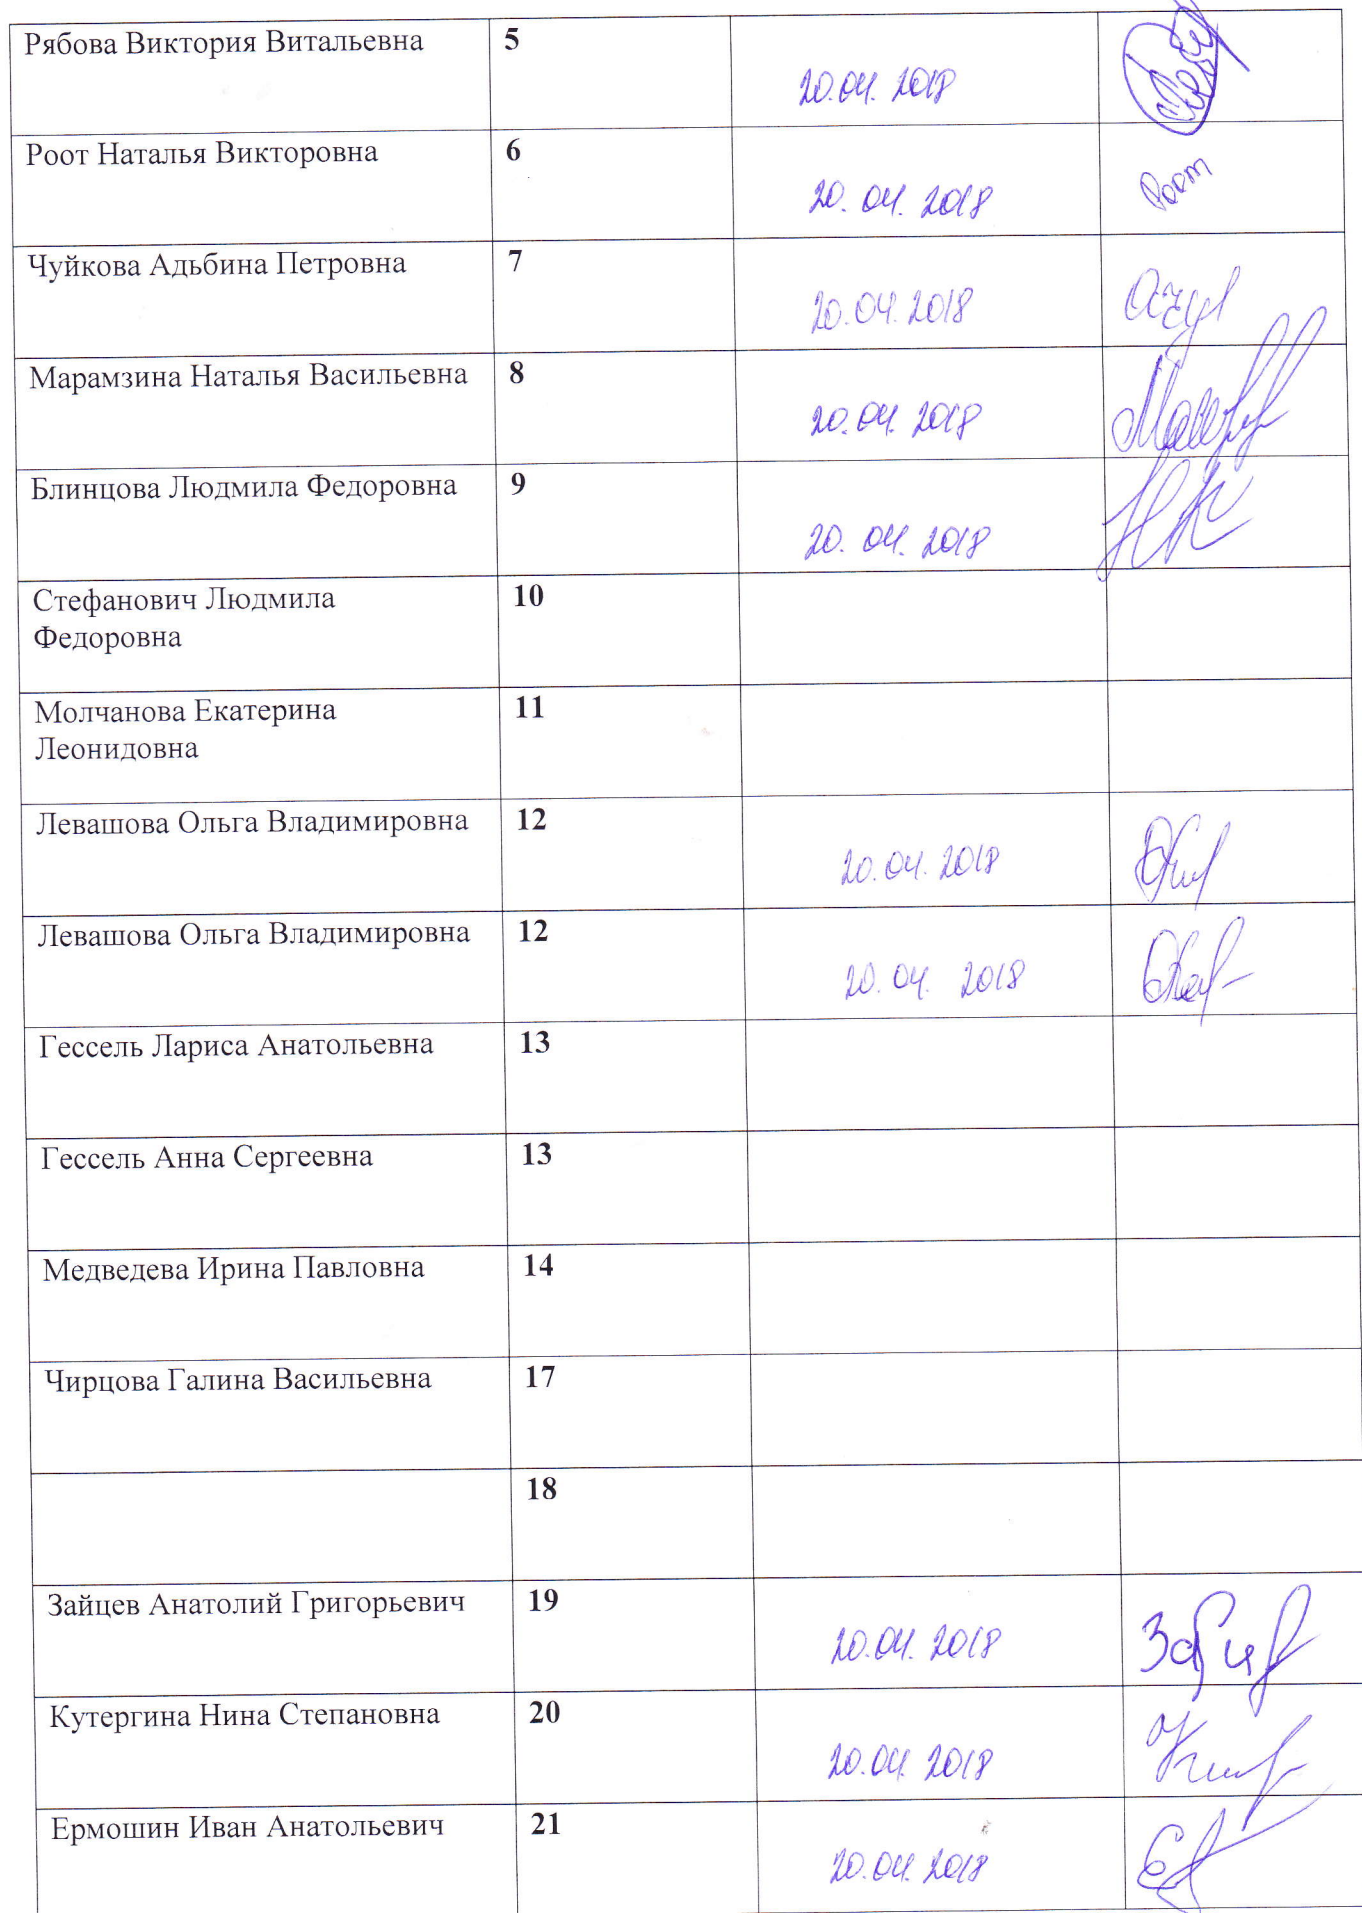 Рябова Виктория Витальевна 5
20.04.2018
Роот Наталья Викторовна 6
20.04.2018 Роот
Чуйкова Адьбина Петровна 7
20.04.2018
Марамзина Наталья Васильевна 8
20.04.2018
Блинцова Людмила Федоровна 9
20.04.2018
Стефанович Людмила 10
Федоровна
Молчанова Екатерина 11
Леонидовна
Левашова Ольга Владимировна 12
20.04.2018
Левашова Ольга Владимировна 12
20.04.2018
Гессель Лариса Анатольевна 13
Гессель Анна Сергеевна 13
Медведева Ирина Павловна 14
Чирцова Галина Васильевна 17
18
Зайцев Анатолий Григорьевич 19
20.04.2018
Кутергина Нина Степановна 20
20.04.2018
Ермошин Иван Анатольевич 21
20.04.2018